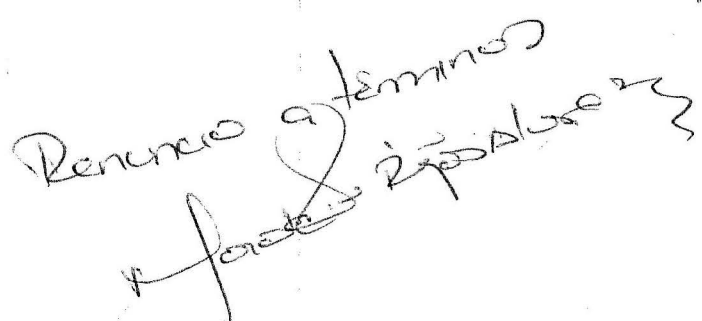 Renuncio a términos
Ríos Alvarez